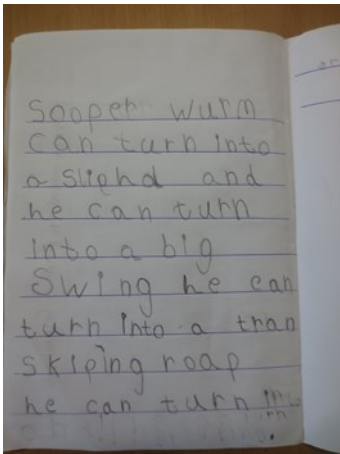 Sooper wurm
can turn into
a sliehd and
he can turn
into a big
Swing he can
turn into a tran
skiping roap
he can turn